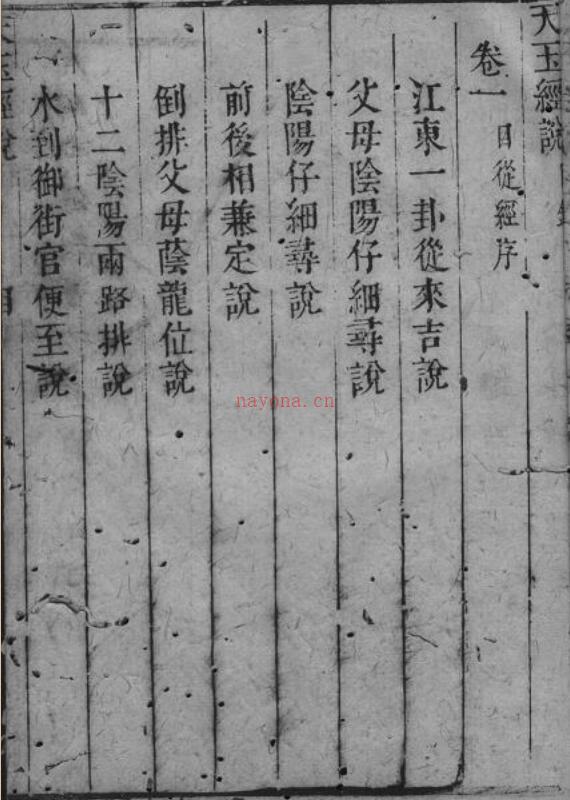 天玉經說
卷一 目從經序
江東一卦從來吉說
父母陰陽仔細尋說
陰陽仔細尋說
前後相兼定說
倒排父母蔭龍位說
十二陰陽兩路排說
水到御街官便至說
nayona.cn